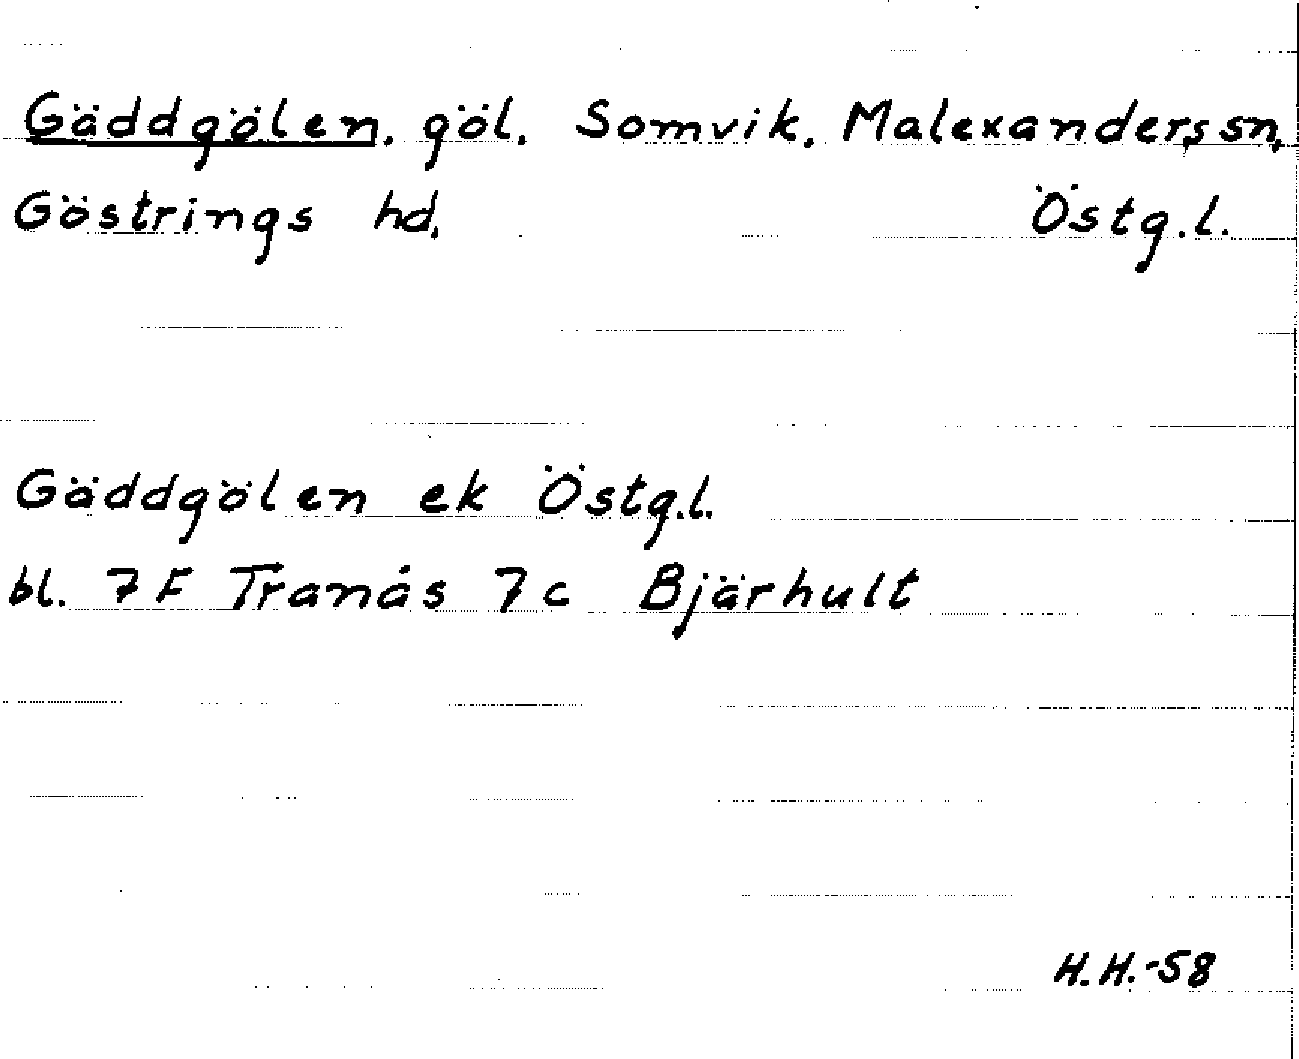 Gäddgölen, göl, Somvik, Malexanders sn,
Göstrings hd, Östg.l.
Gäddgölen ek Östg.l.
bl. 7F Tranås 7c Bjärhult
H.H.-58